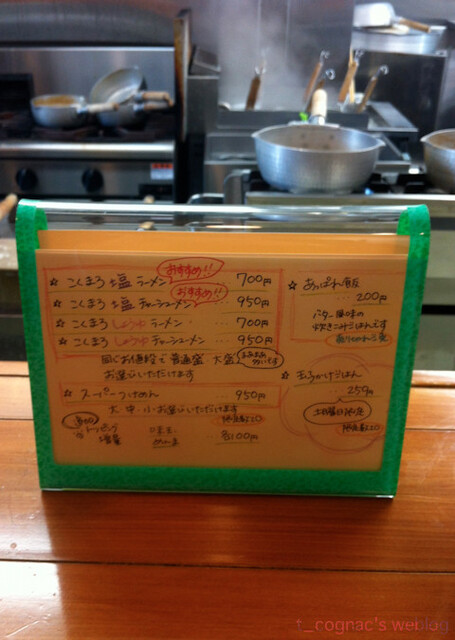 おすすめ!!
☆ こくまろ 塩 ラーメン 700円
おすすめ!!
☆ こくまろ 塩 チャーシューメン 950円
☆ こくまろ しょうゆ ラーメン 700円
☆ こくまろ しょうゆ チャーシューメン 950円
同じお値段で 普通盛 大盛
お選びいただけます
☆ スーパーつけめん 950円
大・中・小・お選びいただけます
トッピング
増量 各100円
☆ あっぱれ飯
200円
バター 風味の
炊きこみごはんです
☆ 玉子かけごはん
250円
土日曜日限定
t_cognac's weblog